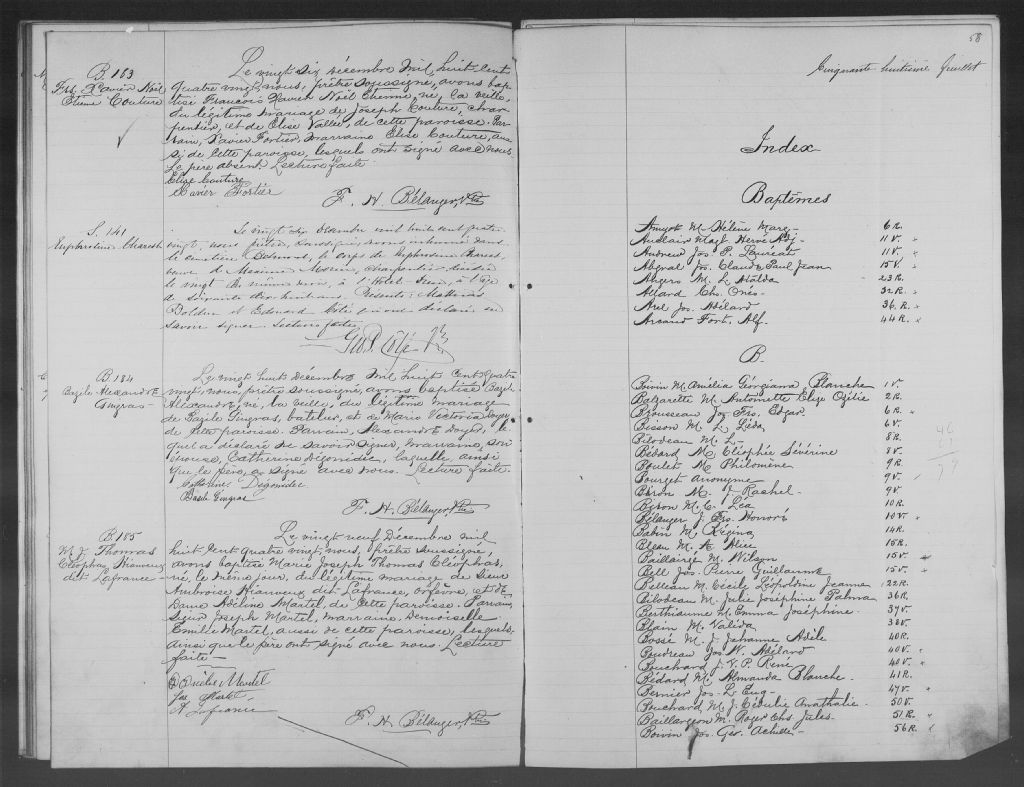 B. 183
Frs. Xavier Noël
Etienne Couture
Le vingt six Décembre mil huit cent
quatre vingt, nous, prêtre soussigné, avons bap-
tisé François Xavier Noël Etienne, né, la veille,
du légitime mariage de Joseph Couture, char-
pentier, et de Elise Vallée, de cette paroisse. Par-
rain, Xavier Fortier, marraine Elise Couture, aus-
si de cette paroisse, lesquels ont signé avec nous.
Le père absent. Lecture faite.
Elise Couture
Xavier Fortier
F. H. Bélanger, Ptre
S. 141
Euphrosine Charest
Le vingt six Décembre mil huit cent quatre
vingt, nous prêtre, soussigné, avons inhumé dans
le cimetière Belmont, le corps de Euphrosine Charest,
veuve de Morin, charpentier, décédée
le vingt du même mois, à l'Hôtel-Dieu, à l'âge
de soixante dix huit ans. Présents:
Bolduc et Edouard Côté qui ont déclaré ne
savoir signer. Lecture faite.
Geo. P. Côté Ptre
B. 184
Bazile Alexandre
Gingras
Le vingt huit Décembre mil huit cent quatre
vingt, nous, prêtre soussigné, avons baptisé Bazile
Alexandre, né, la veille, du légitime mariage
de Bazile Gingras, batelier, et de Marie Victoria Doyer
de cette paroisse. Parrain, Alexandre Doyer, le-
quel a déclaré ne savoir signer, marraine, son
épouse, Catherine Dégonidec, laquelle, ainsi
que le père, a signé avec nous. Lecture faite.
Catherine Dégonidec
Basile Gingras
F. H. Bélanger, Ptre
B. 185
M. J. Thomas
Cléophas Niauveux
dit Lafrance
Le vingt neuf Décembre mil
huit cent quatre vingt, nous, prêtre soussigné,
avons baptisé Marie Joseph Thomas Cléophas,
né, le même jour, du légitime mariage de Sieur
Ambroise Niauveux dit Lafrance, orfèvre, et de
Dame Adeline Martel, de cette paroisse. Parrain,
Sieur Joseph Martel, marraine, Demoiselle
Emélie Martel, aussi de cette paroisse, lesquels
ainsi que le père ont signé avec nous. Lecture
faite
Emélie Martel
Jos. Martel
A. Lafrance
F. H. Bélanger, Ptre
58
Cinquante huitième feuillet
Index
Baptêmes
Amyot M. Hélène Marg. 6 R.
Auclair Hervé Adj. 11 V.
Audneur Jos. P. Lauréat 11 V.
Abgral Jos. Claude Paul Jean 15 V.
Angers M. L. Atalda 23 R.
Allard Chs. Onés. 32 R.
Arel Jos. Adélard 36 R.
Arcand Fort. Alf. 44 R.
B.
Boivin M. Amélia Géorgiana Blanche 1 V.
Balzarette M. Antoinette Eliza Ozélie 2 R.
Brousseau Jos. Frs. Edgar 6 R.
Bisson M. L. Léda 6 V.
Bilodeau M. L. 8 R.
Bédard M. Cléophée Sévérine 8 V.
Boulet M. Philomène 9 R.
Bourget Anonyme 9 V.
Biron M. J. Rachel 9 V.
Bison M. C. Léa 10 R.
Bélanger J. Frs. Honoré 10 V.
Babin M. Régina 14 R.
Bleau M. A. Alice 15 R.
Baillairgé M. Wilson 15 V.
Bell Jos. Pierre Guillaume 15 V.
Belleau M. Cécile Léopoldine Jeanne 22 R.
Bilodeau M. Julie Joséphine Palma 36 R.
Berthiaume M. Emma Joséphine 37 V.
Blain M. Valida 38 V.
Bossé M. J. Jehanne Adèle 40 R.
Boudreau Jos. W. Adélard 40 V.
Bouchard J. V. P. René 40 V.
Bédard M. Almanda Blanche 41 R.
Bernier Jos. L. Eug. 47 V.
Bouchard M. J. Cédulie Anathalie 50 V.
Baillargeon M. Roger Chs. Jules 51 R.
Boivin Jos. Geo. Achille 56 R.